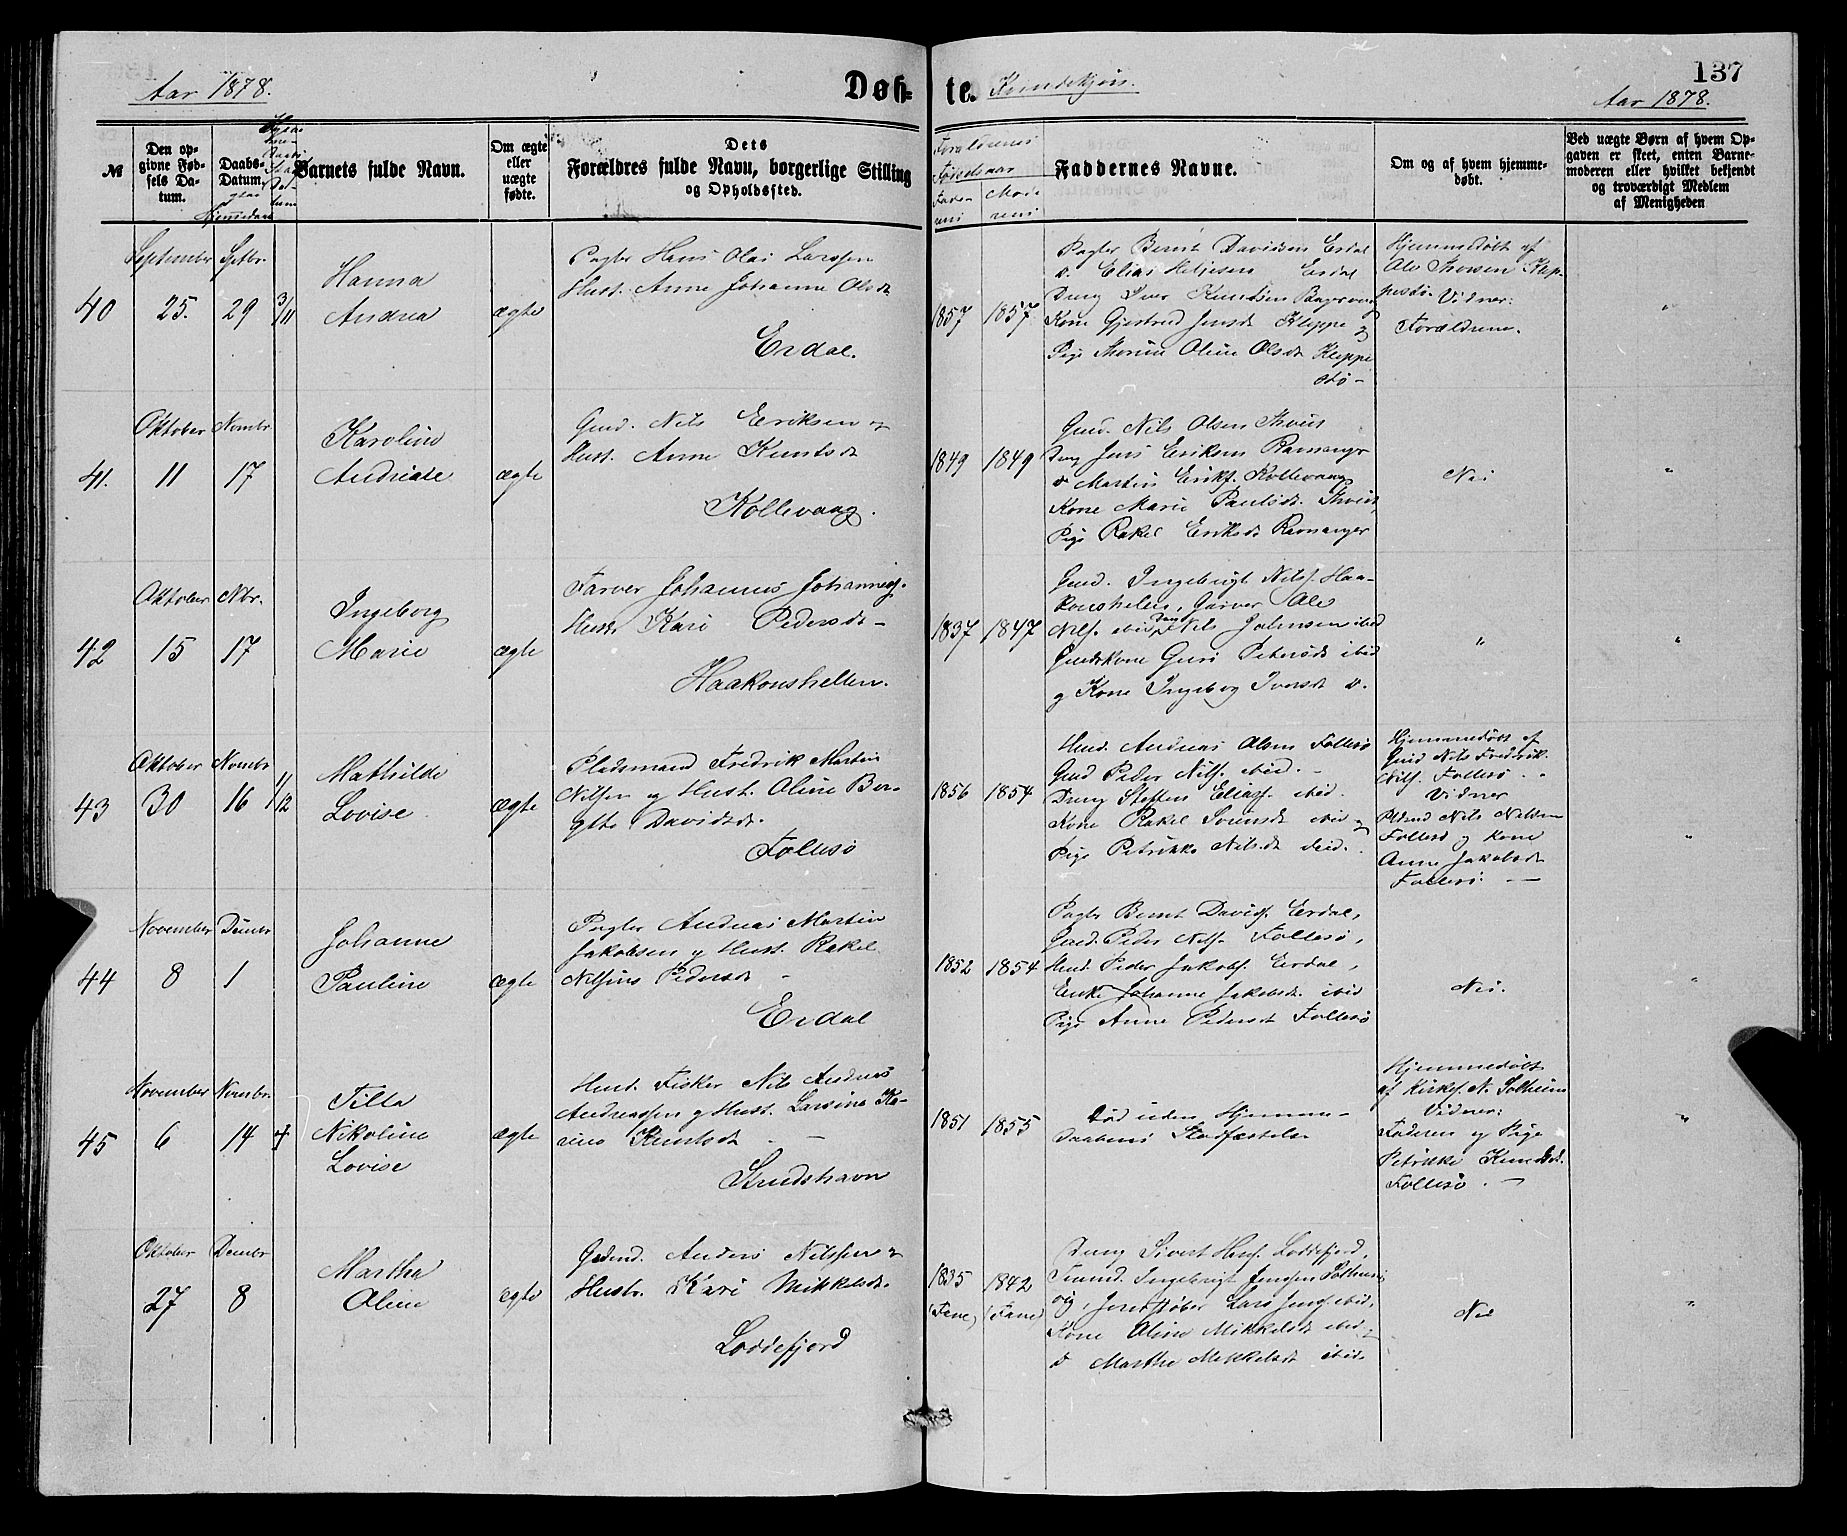 137
Aar 1878.
Døb-
te.
Kvindekjøn.
Aar 1878.
№
Den op-
givne Fød-
sels Da-
tum.
Daabs-
Datum,
Barnets fulde Navn.
Om ægte
eller
uægte
fødte.
Dets
Forældres fulde Navn, borgerlige Stilling
og Opholdssted.
Forældrenes
Fødselsaar
Fade-
rens
Mode
rens
Faddernes Navne.
Om og af hvem hjemme-
døbt.
Ved uægte Børn af hvem Op-
gaven er skeet, enten Barne-
moderen eller hvilket bekjendt
og troværdigt Medlem
af Menigheden
40
September
25.
Septbr.
29
3/11
Hanna
Andrea
ægte
Pagter Hans Olai Larssen
Hust. Anne Johanne Olsdt
Erdal.
1857
1857
Pagter Bernt Davidsen Erdal
Elias Erdal
Dreng Iver Knudsen
Kone Gjertrud Jensdt Kleppe og
Pige Olsdt Kleppe
stø -
Hjemmedøbt af
Ole Thorsen Klep-
pestø. Vidner:
Forældrene.
41.
Oktober
11
Novmbr.
17
Karoline
Andrea
ægte
Gmd. Nils Eriksen og
Hust. Anne Knutsdt
Kollevaag.
1849
1849
Gmd. Nils Olsen
Dreng Jens Eriksen Ravnanger
Martin Eriks. Kollevaag
Kone Marie Paulsdt.
Pige Rakel Eriksdt Ravnanger
Nei
42
Oktober
15
Nbr.
17
Ingeborg
Marie
ægte
Farver Johannes Johannes.
Hustr Kari Pedersdt -
Haakonshellen.
1837
1847
Gmd. Ingebrigt Nils. Haa-
konshellen, Garver Ole
Nils. ibid Nils Johnsen ibid
Gmdskone Guri Petersdt ibid
og Kone Ingeborg Iversdt
"
43
Oktober
30
Novmbr
16
1/12
Mathilde
Lovise
ægte
Pladsmand Fredrik Martin
Nilsen og Hust. Oline Ber-
gitte Davidsdt.
Follesø
1856
1854
Andreas Olsen Follesø
Gmd Peder Nils. ibid. -
Dreng Steffen Elias. ibid.
Kone Rakel Sørensdt ibid og
Pige Petrikke Nilsdt ibid.
Hjemmedøbt af
Gmd Nils Fredrik
Nils. Follesø.
Vidner
Nils
Follesø og Kone
Anne Jakobsdt
Follesø. -
44
November
8
Dcmbr
1
Johanne
Pauline
ægte
Pagter Andreas Martin
Jakobsen og Hust. Rakel
Nilsine Pedersdt -
Erdal
1852
1854
Pagter Bernt Davids. Erdal,
Gmd. Peder Nils. Follesø,
Peder Jakobs. Erdal,
Enke Johanne Jakobsdt. ibid
Pige Anne Pedersdt Follesø
Nei.
45
November
6
Novmbr.
14
Tilla
Nikoline
Lovise
ægte
Fisker Nils Andreas
Andreassen og Hust. Larsine Ka-
rine Knutsdt - -
Strudshavn
1851
1855
Død uden Hjemme-
daabens Stadfæstelse
Hjemmedøbt
af Kirks. N. Solheim
Vidner:
Faderen og Pige
Petrikke Knudsdt.
Follesø. -
Oktober
27
Dcmbr
8
Martha
Oline
ægte
Anders Nilssen og
Hustr. Kari Mikkelsdt.
Loddefjord
1835
(Fane)
1842
(Fane)
Dreng Sivert Hans. Loddefjord,
Ingebrigt Jenssen
vig, Lars Jens. ibid,
Kone Oline Mikkelsdt ibid, og
Marthe Mikkelsdt ibid.
Nei